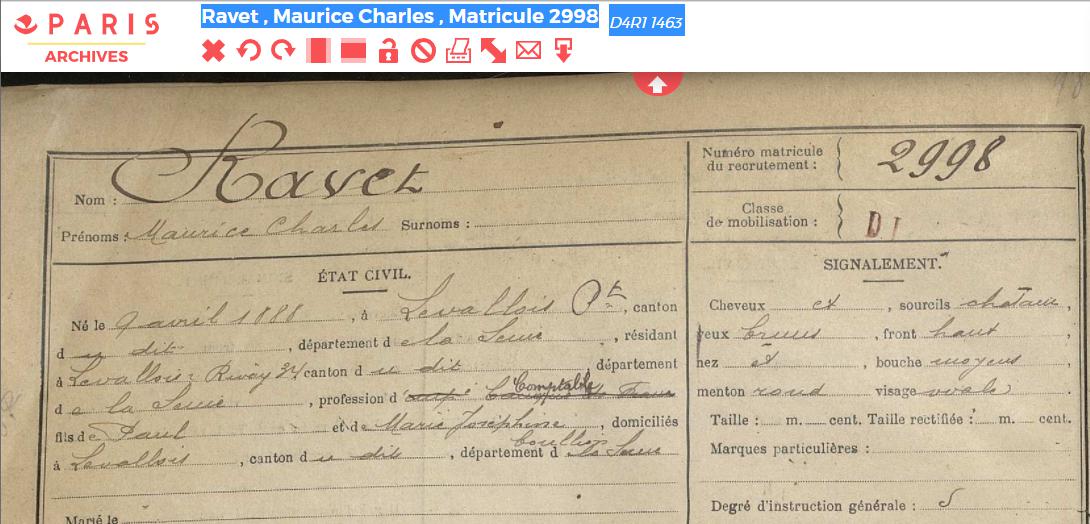 PARIS
ARCHIVES
Ravet , Maurice Charles , Matricule 2998 D4R1 1463
Nom : Ravet
Prénoms : Maurice Charles Surnoms :
Numéro matricule du recrutement : 2998
Classe de mobilisation : D I
ÉTAT CIVIL.
Né le 9 avril 1888, à Levallois Pt, canton
d u dit, département d e la Seine, résidant
à Levallois r Rivay 34 canton d u dit département
d e la Seine, profession d' Comptable
fils de Paul et de Marie Joséphine, domiciliés
à Levallois, canton d u dit, département d la Seine
Marié le
SIGNALEMENT.
Cheveux et, sourcils chatain,
yeux bruns, front haut,
nez et, bouche moyens
menton rond visage ovale
Taille : m. cent. Taille rectifiée : m. cent.
Marques particulières :
Degré d'instruction générale :